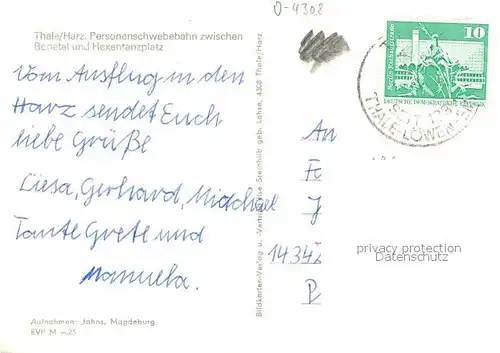 D-4308
Thale/Harz. Personenschwebebahn zwischen
Bodetal und Hexentanzplatz
10
DEUTSCHE DEMOKRATISCHE
THALE
Vom Ausflug in den
Harz sendet Euch
liebe Grüße
Liesa, Gerhard, Michael
Tante Grete und
Manuela.
An
F
J
1434
P
privacy protection
Datenschutz
Bildkarten-Verlag u. Vertrieb Ilse Steinhilb geb. Lohse, 4308 Thale/Harz
Aufnahmen: Jahns, Magdeburg
EVP M -,25